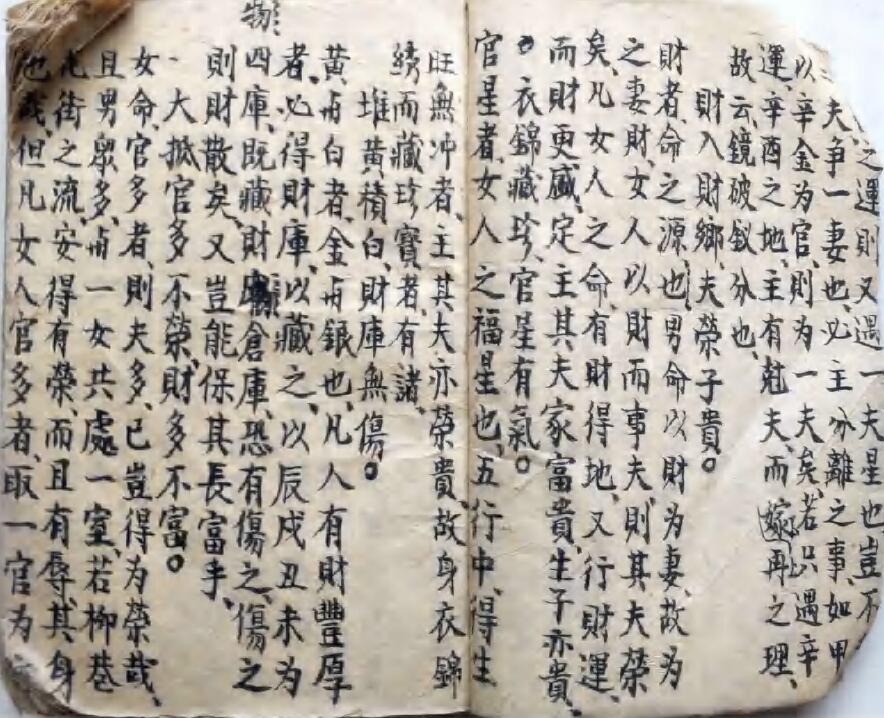 之運則又遇一夫星也豈不
二夫争一妻也必主分離之事、如甲
以辛金为官、則为一夫矣、若只遇辛
運、辛酉之地主有尅夫、而嫁再之理、
故云鏡破釵分也、
財入財鄉、夫榮子貴。
財者、命之源也、男命以財为妻、故为
之妻財、女人以財而事夫、則其夫榮
矣、凡女人之命、有財得地、又行財運、
而財更盛、定主其夫家富貴、生子亦貴、
衣錦藏珍、官星有氣。
官星者、女人之福星也、五行中、得生
旺無冲者、主其夫亦榮貴、故身衣錦
綉而藏珍寶者有諸、
堆黃積白、財庫無傷。
黃㪽白者、金㪽銀也、凡人有財豐厚
者、必得財庫、以藏之、以辰戌丑未为
四庫、既藏財物倉庫、恐有傷之、傷之
則財散矣、又豈能保其長富乎、
一大抵官多不榮、財多不富。
女命、官多者、則夫多、已豈得为榮哉、
且男眾多、㪽一女共處一室、若柳巷
花街之流、安得有榮、而且有辱、其身
也哉、但凡女人官多者、取一官为